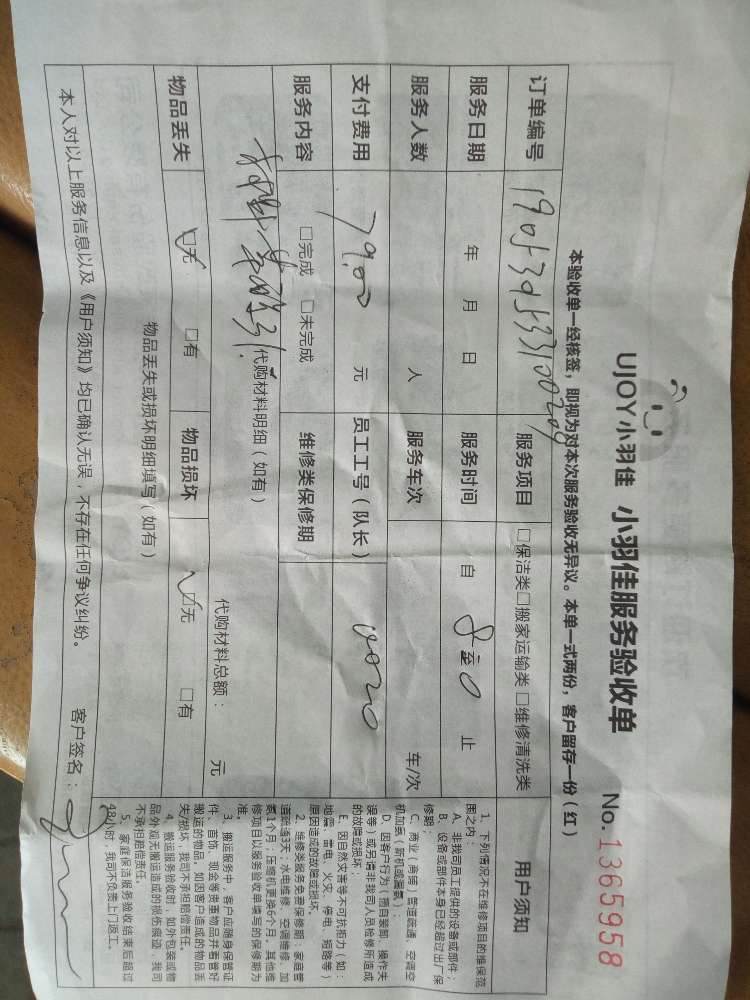 UJOY小羽佳 小羽佳服务验收单 No. 1365958
本验收单一经核签，即视为对本次服务验收无异议。本单一式两份，客户留存一份（红）
订单编号 服务项目 □保洁类□搬家运输类 □维修清洗类
服务日期 年 月 日 服务时间 自 8 至 0 止
服务人数 人 服务车次 车/次
支付费用 79.00 元 员工工号（队长） 0020
服务内容 □完成 □未完成 维修类保修期
代购材料明细（如有） 代购材料总额： 元
物品丢失 □无 □有 物品损坏 □无 □有
物品丢失或损坏明细填写（如有）
本人对以上服务信息以及《用户须知》均已确认无误，不存在任何争议纠纷。 客户签名：
用户须知
1、下列情况不在维修项目的维保范
围之内：
A、非我司员工提供的设备或部件；
B、设备或部件本身已经超过出厂保
修期；
C、商业（商铺）管道疏通、空调空
机加氨（新机或漏氨）；
D、因客户行为（擅自装卸、操作失
误等）或另请非我司人员检修所造成
的故障或损坏；
E、因自然灾害等不可抗拒力（如：
地震、雷电、火灾、停电、短路等）
原因造成的故障或损坏。
2、维修类服务免费保修期：家庭管
道疏通3天；水电维修、空调维修、加
氨1个月；压缩机更换6个月。其他维
修项目以服务验收单填写的保修期为
准。
3、搬运服务中，客户应随身保管证
件、首饰、现金等贵重物品并看管好
搬运的物品，如因客户造成的物品丢
失/损坏，我司不承担赔偿责任。
4、搬运服务验收时，如外包装或物
品外观无搬运造成的损伤痕迹，我司
不承担赔偿责任。
5、家庭保洁服务验收结束后超过
48小时，我司不负责上门返工。